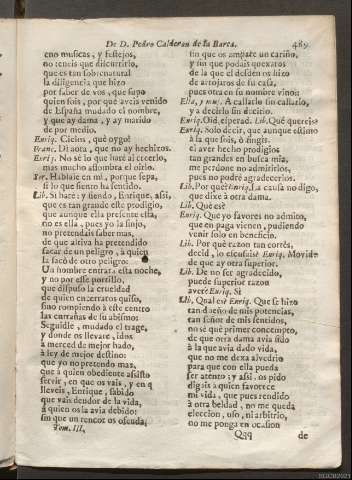 De D. Pedro Calderon de la Barca. 489
eno musicas, y festejos,
no teneis que discurrirlo,
que es tan sobrenatural
la diligencia que hizo
por saber de vos, que supo
quien sois, y por què aveis venido
de España mudado el nombre,
y que ay dama, y ay marido
de por medio.
Enriq. Cielos, què oygo!
Franc. Di aora, que no ay hechizos.
Enriq. No sè lo que harè al creerlo,
mas mucho assombra el oirlo.
Ser. Hablale en mi, porque sepa,
si lo que siento ha sentido.
Lib. Si harè: y siendo, Enrique, assi,
que es tan grande este prodigio,
que aunque ella presente està,
no es ella, pues yo la finjo,
no pretendais saber mas,
de que altiva ha pretendido
sacar de un peligro, à quien
la sacò de otro peligro.
Un hombre entrarà esta noche,
y no por esse postillo,
que dispuso la crueldad
de quien encerraros quiso,
sino rompiendo à este centro
las entrañas de su abismo:
Seguidle, mudado el trage,
y donde os llevare, idos
à merced de mejor hado,
à ley de mejor destino:
que yo no pretendo mas,
que à quien obediente assisto
servir, en que os vais, y en q
lleveis, Enrique, sabido
que vais deudor de la vida,
à quien os la avia debido:
sin que un rencor os ofenda,
Tom. III.
sin que os ampare un cariño,
y sin que podais quexaros
de la que el desdèn os hizo
de arrojaros de su casa,
pues otra en su nombre vino:
Ella, y mus. A callarlo sin callarlo,
y à decirlo sin decirlo.
Enriq. Oìd, esperad. Lib. Què quereis?
Enriq. Solo decir, que aunque estimo
à la que sois, ò fingis
el aver hecho prodigios
tan grandes en busca mia,
me perdone no admitirlos,
pues no podrè agradecerlos.
Lib. Por què? Enriq. La causa no digo,
que dixe à otra dama.
Lib. Què es?
Enriq. Que yo favores no admito,
que en paga vienen, pudiendo
venir solo en beneficio.
Lib. Por què razon tan cortès,
decid, lo escusais? Enriq. Movido
de que ay otra superior.
Lib. De no ser agradecido,
puede superior razon
aver? Enriq. Si
Lib. Qual es? Enriq. Que se hizo
tan dueño de mis potencias,
tan señor de mis sentidos,
no sè què primer concepto,
de que otra dama avia sido
à la que avia dado vida,
que no me dexa alvedrio
para que con ella pueda
ser atento; y assi, os pido
digais à quien favorece
mi vida, que pues rendido
à otra beldad, no me queda
eleccion, uso, ni arbitrio,
no me ponga en ocasion
Qqq de